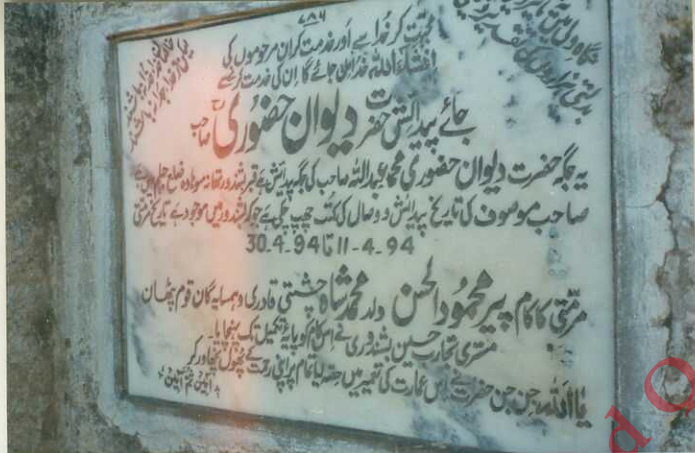 ۷۸۶
نگاہ ولی میں
بدلتی ہزاروں کی تقدیر
محبت کر خُدا سے اور خدمت کر ان مرحوموں کی
انشاءاللہ خدا مل جائے گا ان کی خدمت کرنے سے
جائے پیدائش حضرت دیوان حضوری صاحب
یہ جگہ حضرت دیوان حضوری محمد عبداللہ صاحب کی جگہ پیدائش ہے بشندور تھانہ سوہاوہ ضلع جہلم میں ہے
صاحب موصوف کی تاریخ پیدائش و وصال کی کُتب چھپ چکی ہے جو کہ بشندور میں موجود ہے تاریخ مرمتی
11-4-94 تا 30.4.94
مرمتی کا کام پیر محمود الحسن ولد محمد شاہ چشتی قادری و ہمسایہ گان قوم پٹھان
مستری تحارب حسین بشندوری نے اس کام کو پایۂ تکمیل تک پہنچایا۔
یا اللہ جن جن حضرت نے اس عمارت کی تعمیر میں حصہ لیا تمام پر اپنی رحمت کے پھول نچھاور کر
آمین ثم آمین